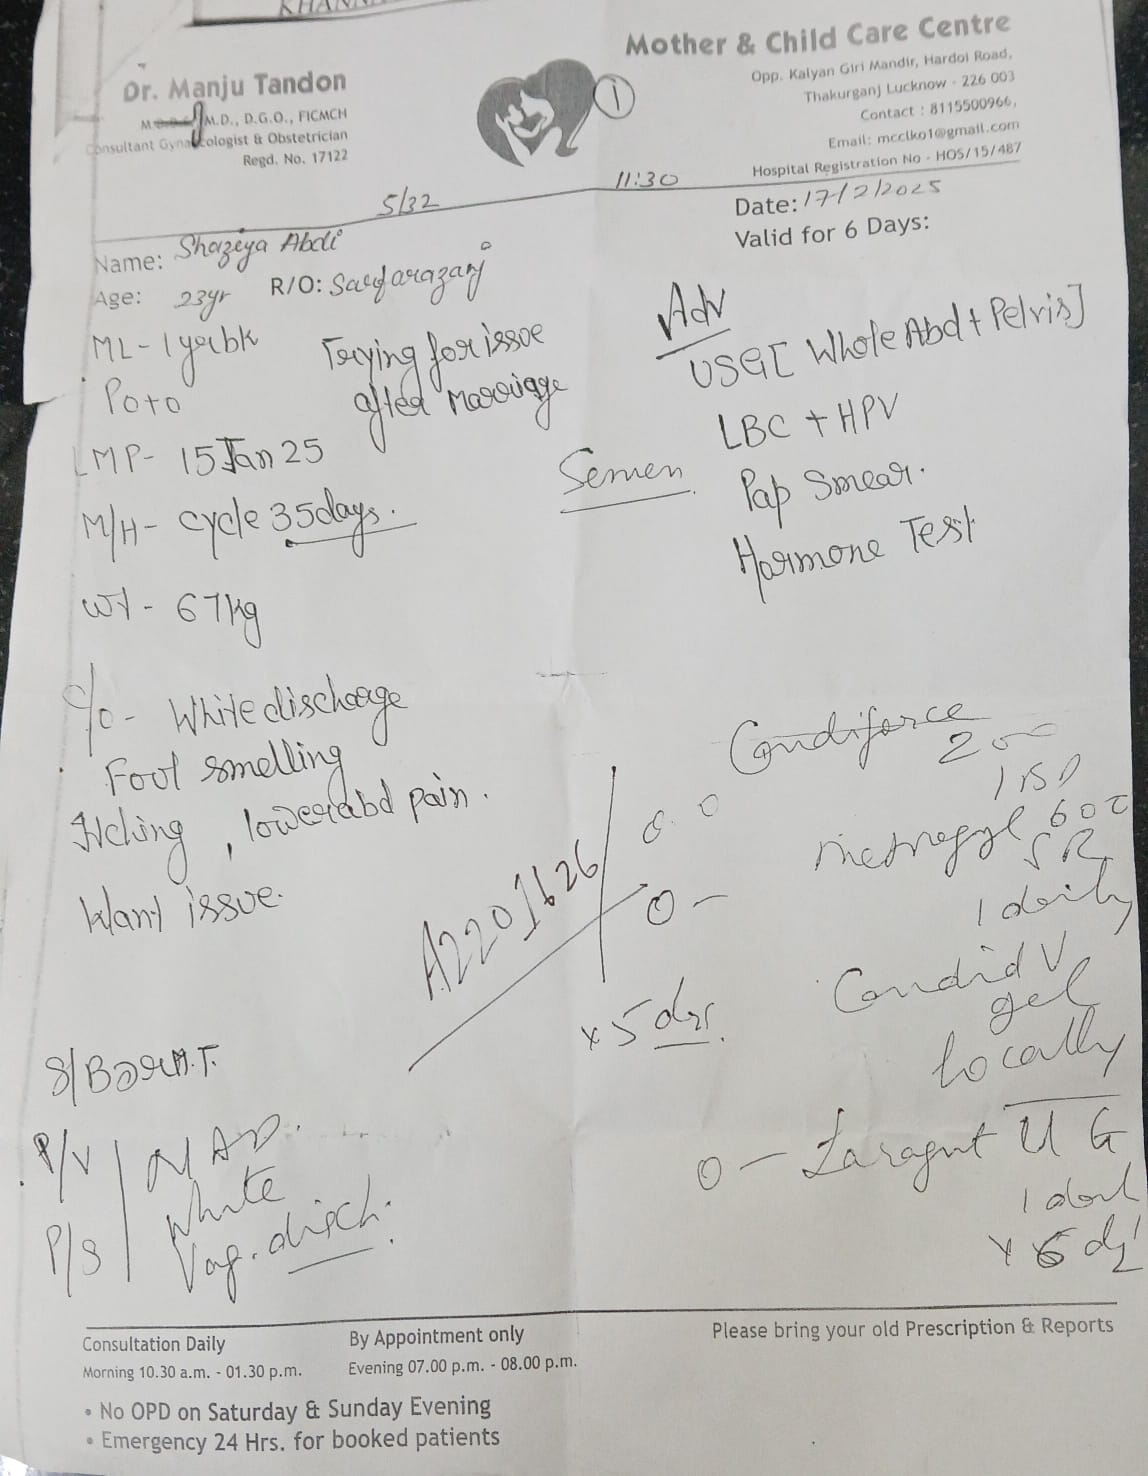 KHANN
Dr. Manju Tandon
M.D., D.G.O., FICMCH
Consultant Gynaecologist & Obstetrician
Regd. No. 17122
1
Mother & Child Care Centre
Opp. Kalyan Giri Mandir, Hardoi Road,
Thakurganj Lucknow - 226 003
Contact : 8115500966,
Email: mcclko1@gmail.com
Hospital Registration No - HOS/15/487
5/32
11:30
Date: 17/2/2025
Valid for 6 Days:
Name: Shazeya Abdi
Age: 23yr R/O: Sarfarazganj
ML- 1 year bk
Trying for issue
after Marriage
P0+0
LMP- 15 Jan 25
M/H- cycle 35days.
Wt- 67kg
C/o- White discharge
Foul smelling
Itching, lower abd pain.
Want issue.
Adv
USG [Whole Abd + Pelvis]
LBC + HPV
Semen
Pap Smear.
Hormone Test
A2201626
Candiforce
200
1 BD
metrogyl 600
SR
1 daily
x 5 dys
Candid V
gel
Locally
0 - UG
1 dail
x 6 dys
S/B
P/V NAD.
P/S White
Vag. disch.
Consultation Daily
Morning 10.30 a.m. - 01.30 p.m.
By Appointment only
Evening 07.00 p.m. - 08.00 p.m.
Please bring your old Prescription & Reports
• No OPD on Saturday & Sunday Evening
• Emergency 24 Hrs. for booked patients